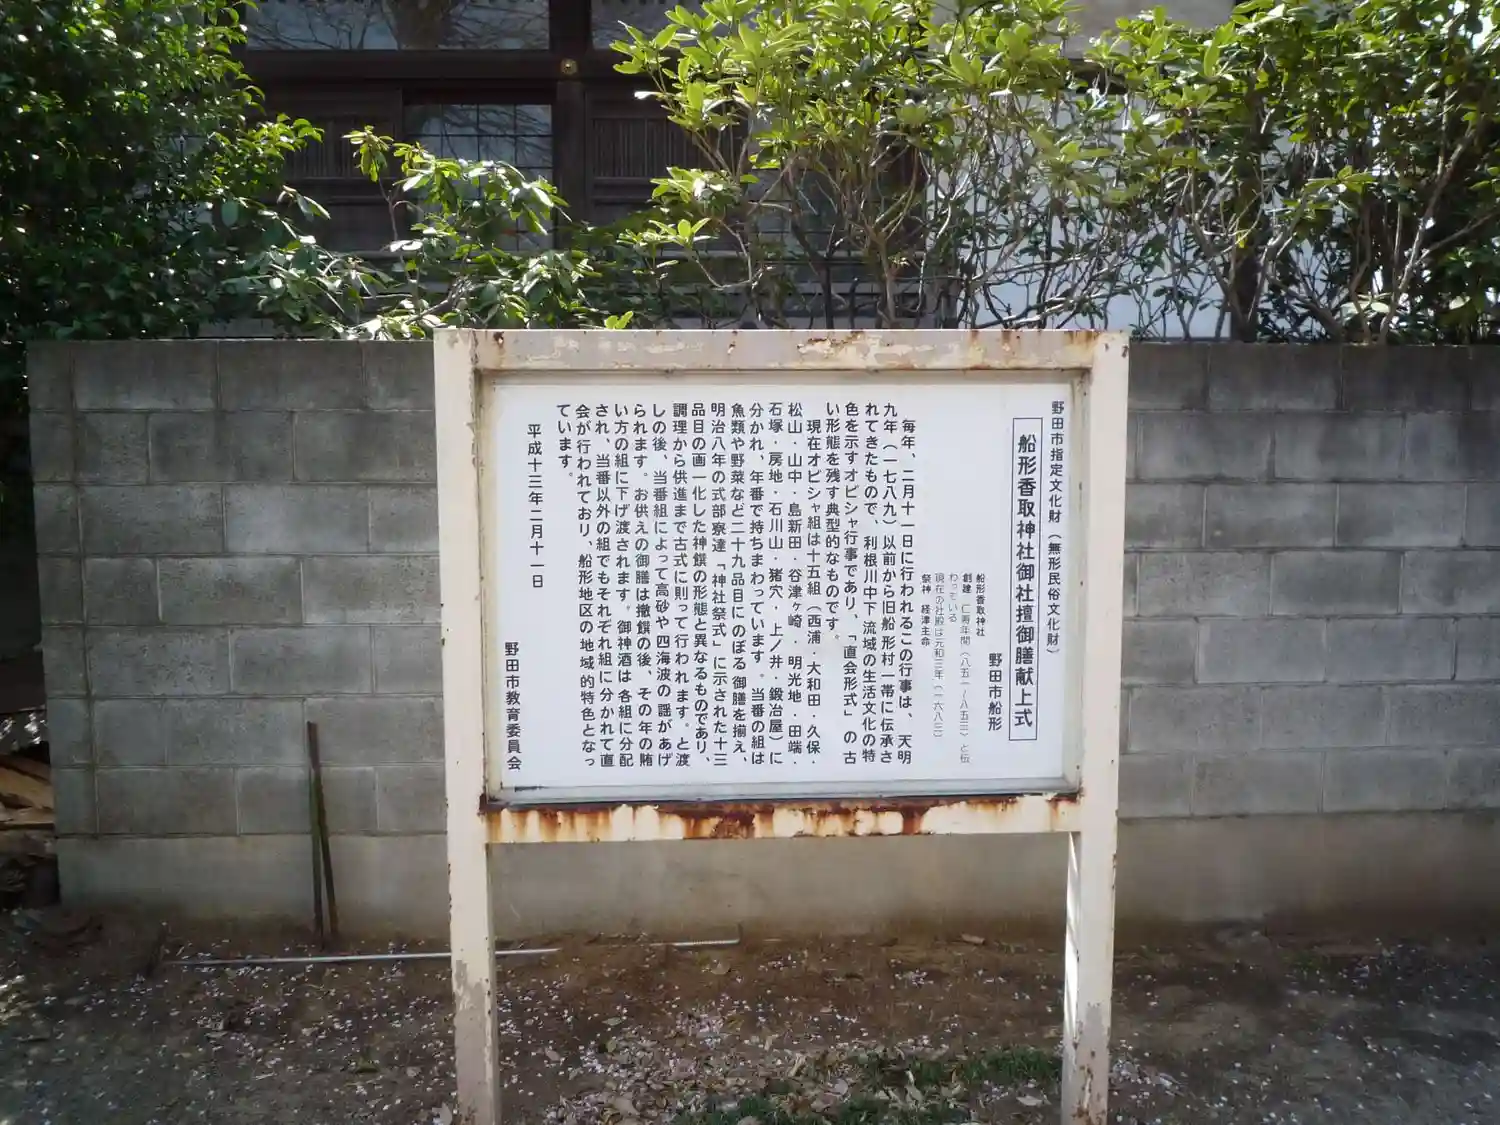 野田市指定文化財(無形民俗文化財)
船形香取神社御社擅御膳献上式
野田市船形
船形香取神社
創建 仁寿年間(八五一~八五三)と伝
わっている
現在の社殿は元和三年(一六八三)
祭神 経津主命
毎年、二月十一日に行われるこの行事は、天明
九年(一七八九)以前から旧船形村一帯に伝承さ
れてきたもので、利根川中下流域の生活文化の特
色を示すオビシャ行事であり、「直会形式」の古
い形態を残す典型的なものです。
現在オビシャ組は十五組(西浦・大和田・久保・
松山・山中・島新田・谷津ヶ崎・明光地・田端・
石塚・房地・石川山・猪穴・上ノ井・鍛冶屋)に
分かれ、年番で持ちまわっています。当番の組は
魚類や野菜など二十九品目にのぼる御膳を揃え、
明治八年の式部寮達「神社祭式」に示された十三
品目の画一化した神饌の形態と異なるものであり、
調理から供進まで古式に則って行われます。と渡
しの後、当番組によって高砂や四海波の謡があげ
られます。お供えの御膳は撤饌の後、その年の賄
い方の組に下げ渡されます。御神酒は各組に分配
され、当番以外の組でもそれぞれ組に分かれて直
会が行われており、船形地区の地域的特色となっ
ています。
平成十三年二月十一日
野田市教育委員会